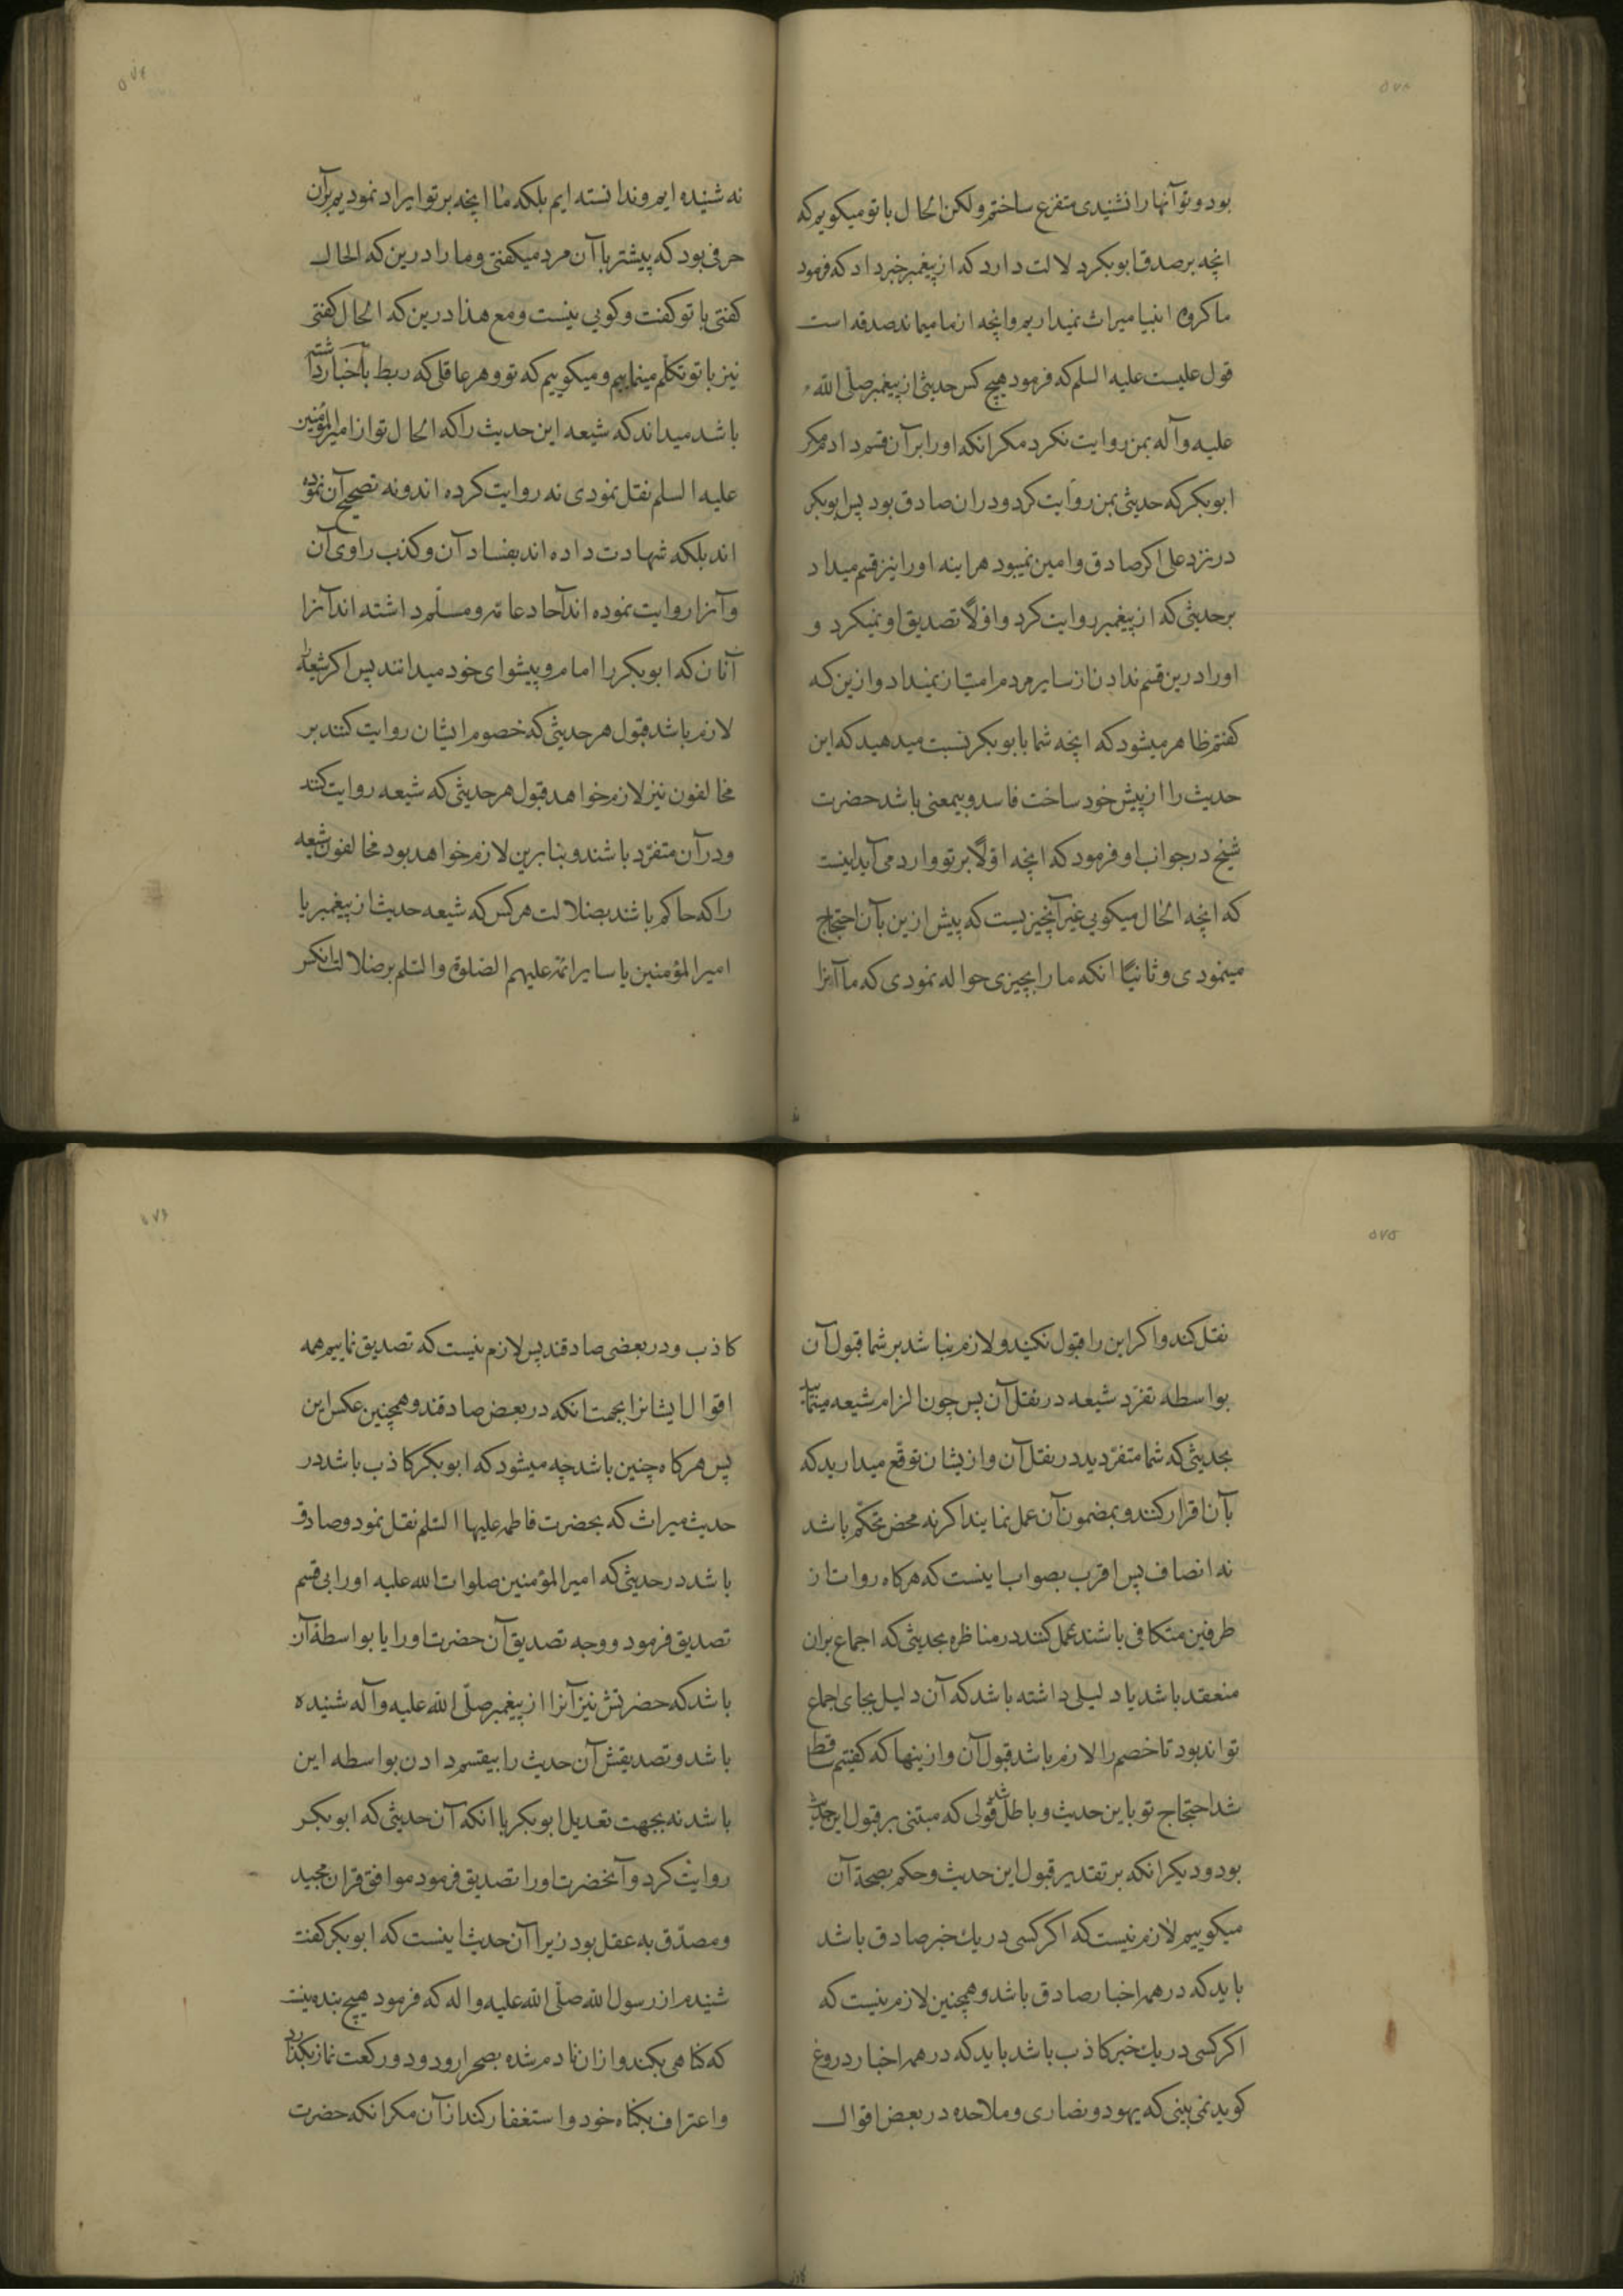 بود و تو آنها را نشنیدی متفرع ساختم ولکن الحال با تو میکویم که
انچه بر صدق ابوبکر دلالت دارد که از پیغمبر خبر داد که فرمود
ما کروه انبیا میراث نمیداریم وانچه از ما میماند صدقه است
قول علیست علیه السلم که فرمود هیچ کس حدیثی از پیغمبر صلی الله
علیه وآله بمن روایت نکرد مکر انکه او را بر آن قسم دادم مکر
ابوبکر که حدیثی بمن روایت کرد ودران صادق بود پس ابوبکر
در نزد علی اکر صادق وامین نمیبود هراینه او را نیز قسم میداد
بر حدیثی که از پیغمبر روایت کرد واولاً تصدیق او نمیکرد و
او را درین قسم ندادن از سایر مردم امتیاز نمیداد وازین که
کفتم ظاهر میشود که انچه شما بابوبکر نسبت میدهید که این
حدیث را از پیش خود ساخت فاسد وبیمعنی باشد حضرت
شیخ در جواب او فرمود که انچه اولاً بر تو وارد می آید اینست
که انچه الحال میکویی غیر آنچیزیست که پیش ازین بآن احتجاج
مینمودی وثانیاً انکه ما را بچیزی حواله نمودی که ما آنرا
نه شنیده ایم وندانسته ایم بلکه ما انچه بر تو ایراد نمودیم بر آن
حرفی بود که پیشتر با آن مرد میکفتی وما را درین که الحال
کفتی با تو کفت وکویی نیست ومع هذا درین که الحال کفتی
نیز با تو تکلم مینماییم ومیکوییم که تو وهر عاقلی که ربط باخبار داشته
باشد میداند که شیعه این حدیث را که الحال تو از امیرالمؤمنین
علیه السلم نقل نمودی نه روایت کرده اند ونه تصحیح آن نموده
اند بلکه شهادت داده اند بفساد آن وکذب راوی آن
وآنرا روایت نموده اند آحاد عامه ومسلم داشته اند آنرا
آنان که ابوبکر را امام وپیشوای خود میدانند پس اکر شیعه را
لازم باشد قبول هر حدیثی که خصوم ایشان روایت کنند بر
مخالفون نیز لازم خواهد قبول هر حدیثی که شیعه روایت کنند
ودر آن متفرد باشند وبنابرین لازم خواهد بود مخالفون شیعه
را که حاکم باشند بضلالت هر کس که شیعه حدیث از پیغمبر یا
امیرالمؤمنین یا سایر ائمه علیهم الصلوة والسلم بر ضلالت انکس
نقل کند واکر این را قبول نکنید ولازم نباشد بر شما قبول آن
بواسطه تفرد شیعه در نقل آن پس چون الزام شیعه مینمایید
بحدیثی که شما متفردید در نقل آن وازیشان توقع میدارید که
بآن اقرار کنند وبمضمون آن عمل نمایند اکر نه محض تحکم باشد
نه انصاف پس اقرب بصواب اینست که هرکاه روات از
طرفین متکافی باشند عمل کنند در مناظره بحدیثی که اجماع بران
منعقد باشد یا دلیلی داشته باشد که آن دلیل بجای اجماع
تواند بود تا خصم را لازم باشد قبول آن وازینها که کفتیم ساقط
شد احتجاج تو باین حدیث وباطل شد قولی که مبتنی بر قبول این حدیث
بود ودیکر انکه بر تقدیر قبول این حدیث وحکم بصحة آن
میکوییم لازم نیست که اکر کسی در یك خبر صادق باشد
باید که در همه اخبار صادق باشد وهمچنین لازم نیست که
اکر کسی در یك خبر کاذب باشد باید که در همه اخبار دروغ
کوید نمی بینی که یهود ونصاری وملاحده در بعض اقوال
کاذب ودر بعضی صادقند پس لازم نیست که تصدیق نماییم همه
اقوال ایشانرا بجهت انکه در بعض صادقند وهمچنین عکس این
پس هرکاه چنین باشد چه میشود که ابوبکر کاذب باشد در
حدیث میراث که بحضرت فاطمه علیها السلم نقل نمود وصادق
باشد در حدیثی که امیرالمؤمنین صلوات الله علیه او را بی قسم
تصدیق فرمود ووجه تصدیق آن حضرت او را یا بواسطهٔ آن
باشد که حضرتش نیز آنرا از پیغمبر صلی الله علیه وآله شنیده
باشد وتصدیقش آن حدیث را بیقسم دادن بواسطه این
باشد نه بجهت تعدیل ابوبکر یا انکه آن حدیثی که ابوبکر
روایت کرد وآنحضرت او را تصدیق فرمود موافق قران مجید
ومصدق به عقل بود زیرا آن حدیث اینست که ابوبکر کفت
شنیدم از رسول الله صلی الله علیه واله که فرمود هیچ بنده نیست
که کناهی بکند وازان نادم شده بصحرا رود ودو رکعت نماز بکذارد
واعتراف بکناه خود واستغفار کند از آن مکر انکه حضرت